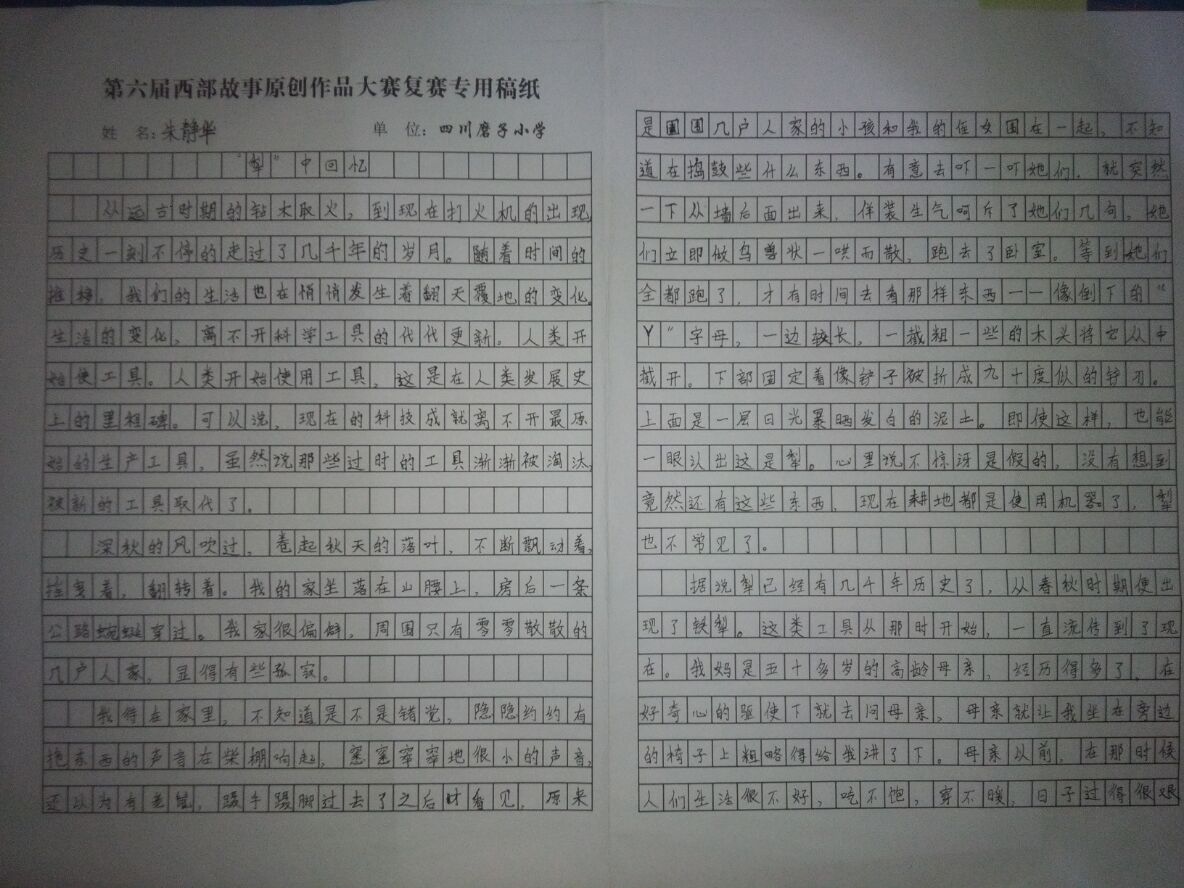 第六届西部故事原创作品大赛复赛专用稿纸
姓 名：朱静华 单 位：四川磨子小学
“犁”中回忆
从远古时期的钻木取火，到现在打火机的出现，
历史一刻不停的走过了几千年的岁月。随着时间的
推移，我们的生活也在悄悄发生着翻天覆地的变化。
生活的变化，离不开科学工具的代代更新。人类开
始使工具。人类开始使用工具，这是在人类发展史
上的里程碑。可以说，现在的科技成就离不开最原
始的生产工具，虽然说那些过时的工具渐渐被淘汰，
被新的工具取代了。
深秋的风吹过，卷起秋天的落叶，不断飘动着，
摇曳着，翻转着。我的家坐落在山腰上，房后一条
公路蜿蜒穿过。我家很偏僻，周围只有零零散散的
几户人家，显得有些孤寂。
我待在家里，不知道是不是错觉，隐隐约约有
拖东西的声音在柴棚响起，窸窸窣窣地很小的声音，
还以为有老鼠，蹑手蹑脚过去了之后才看见，原来
是围围几户人家的小孩和我的侄女围在一起，不知
道在捣鼓些什么东西。有意去吓一吓她们，就突然
一下从墙后面出来，佯装生气呵斥了她们几句，她
们立即做鸟兽状一哄而散，跑去了卧室。等到她们
全都跑了，才有时间去看那样东西——像倒下的“
Y”字母，一边较长，一截粗一些的木头将它从中
截开。下部固定着像铲子被折成九十度似的铧刃。
上面是一层日光暴晒发白的泥土。即使这样，也能
一眼认出这是犁。心里说不惊讶是假的，没有想到
竟然还有这些东西，现在耕地都是使用机器了，犁
也不常见了。
据说犁已经有几千年历史了，从春秋时期便出
现了铁犁。这类工具从那时开始，一直流传到了现
在。我妈是五十多岁的高龄母亲，经历得多了，在
好奇心的驱使下就去问母亲，母亲就让我坐在旁边
的椅子上粗略得给我讲了下。母亲以前，在那时候
人们生活很不好，吃不饱，穿不暖，日子过得很艰